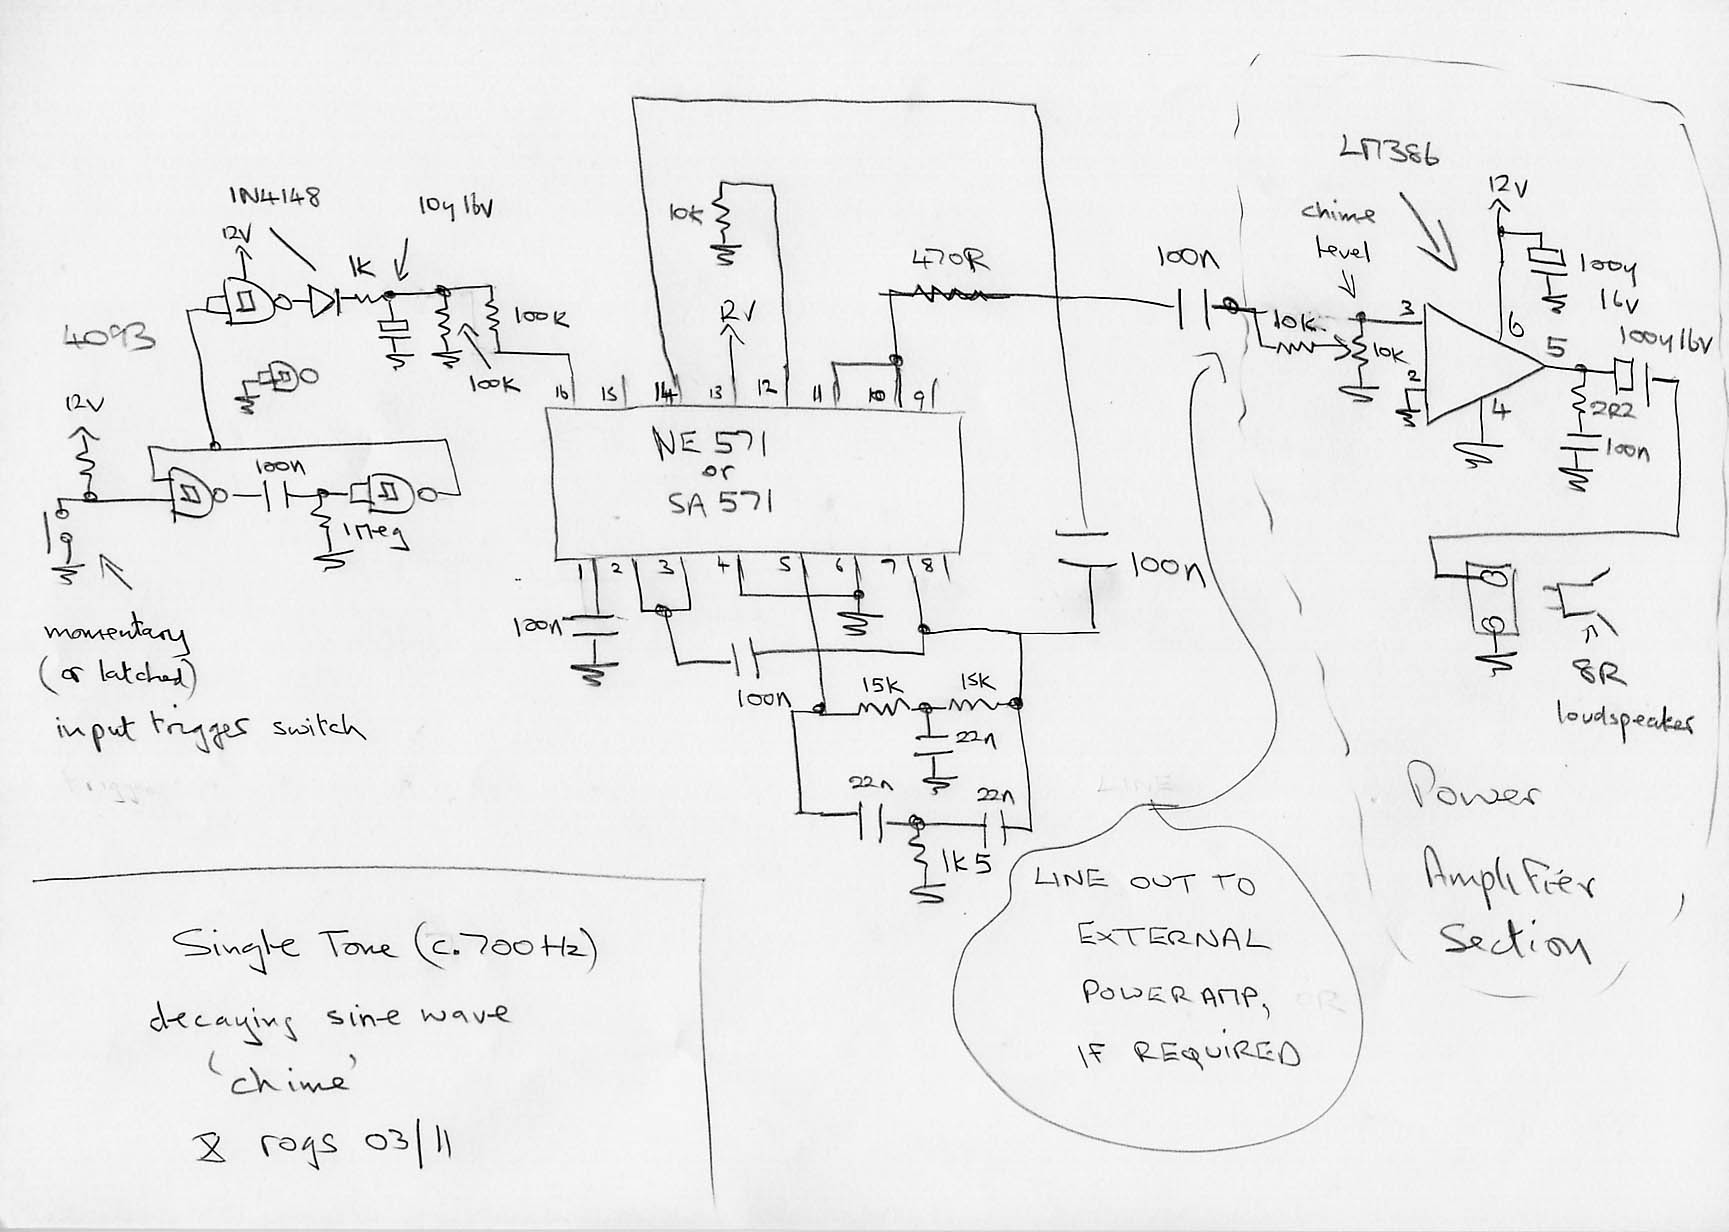 LM386
12V
chime
level
100µ
16V
3
6
5
2
4
10K
10K
100µ16V
2R2
100n
8R
loudspeaker
Power
Amplifier
Section
1N4148
12V
10µ 16V
1K
100K
100K
4093
12V
100n
1Meg
momentary
(or latched)
input trigger switch
10K
470R
100n
16 15 14 13 12 11 10 9
NE 571
or
SA 571
1 2 3 4 5 6 7 8
100n
100n
100n
15K 15K
22n
22n 22n
1K5
LINE OUT TO
EXTERNAL
POWER AMP,
IF REQUIRED
Single Tone (c.700Hz)
decaying sine wave
'chime'
rogs 03/11